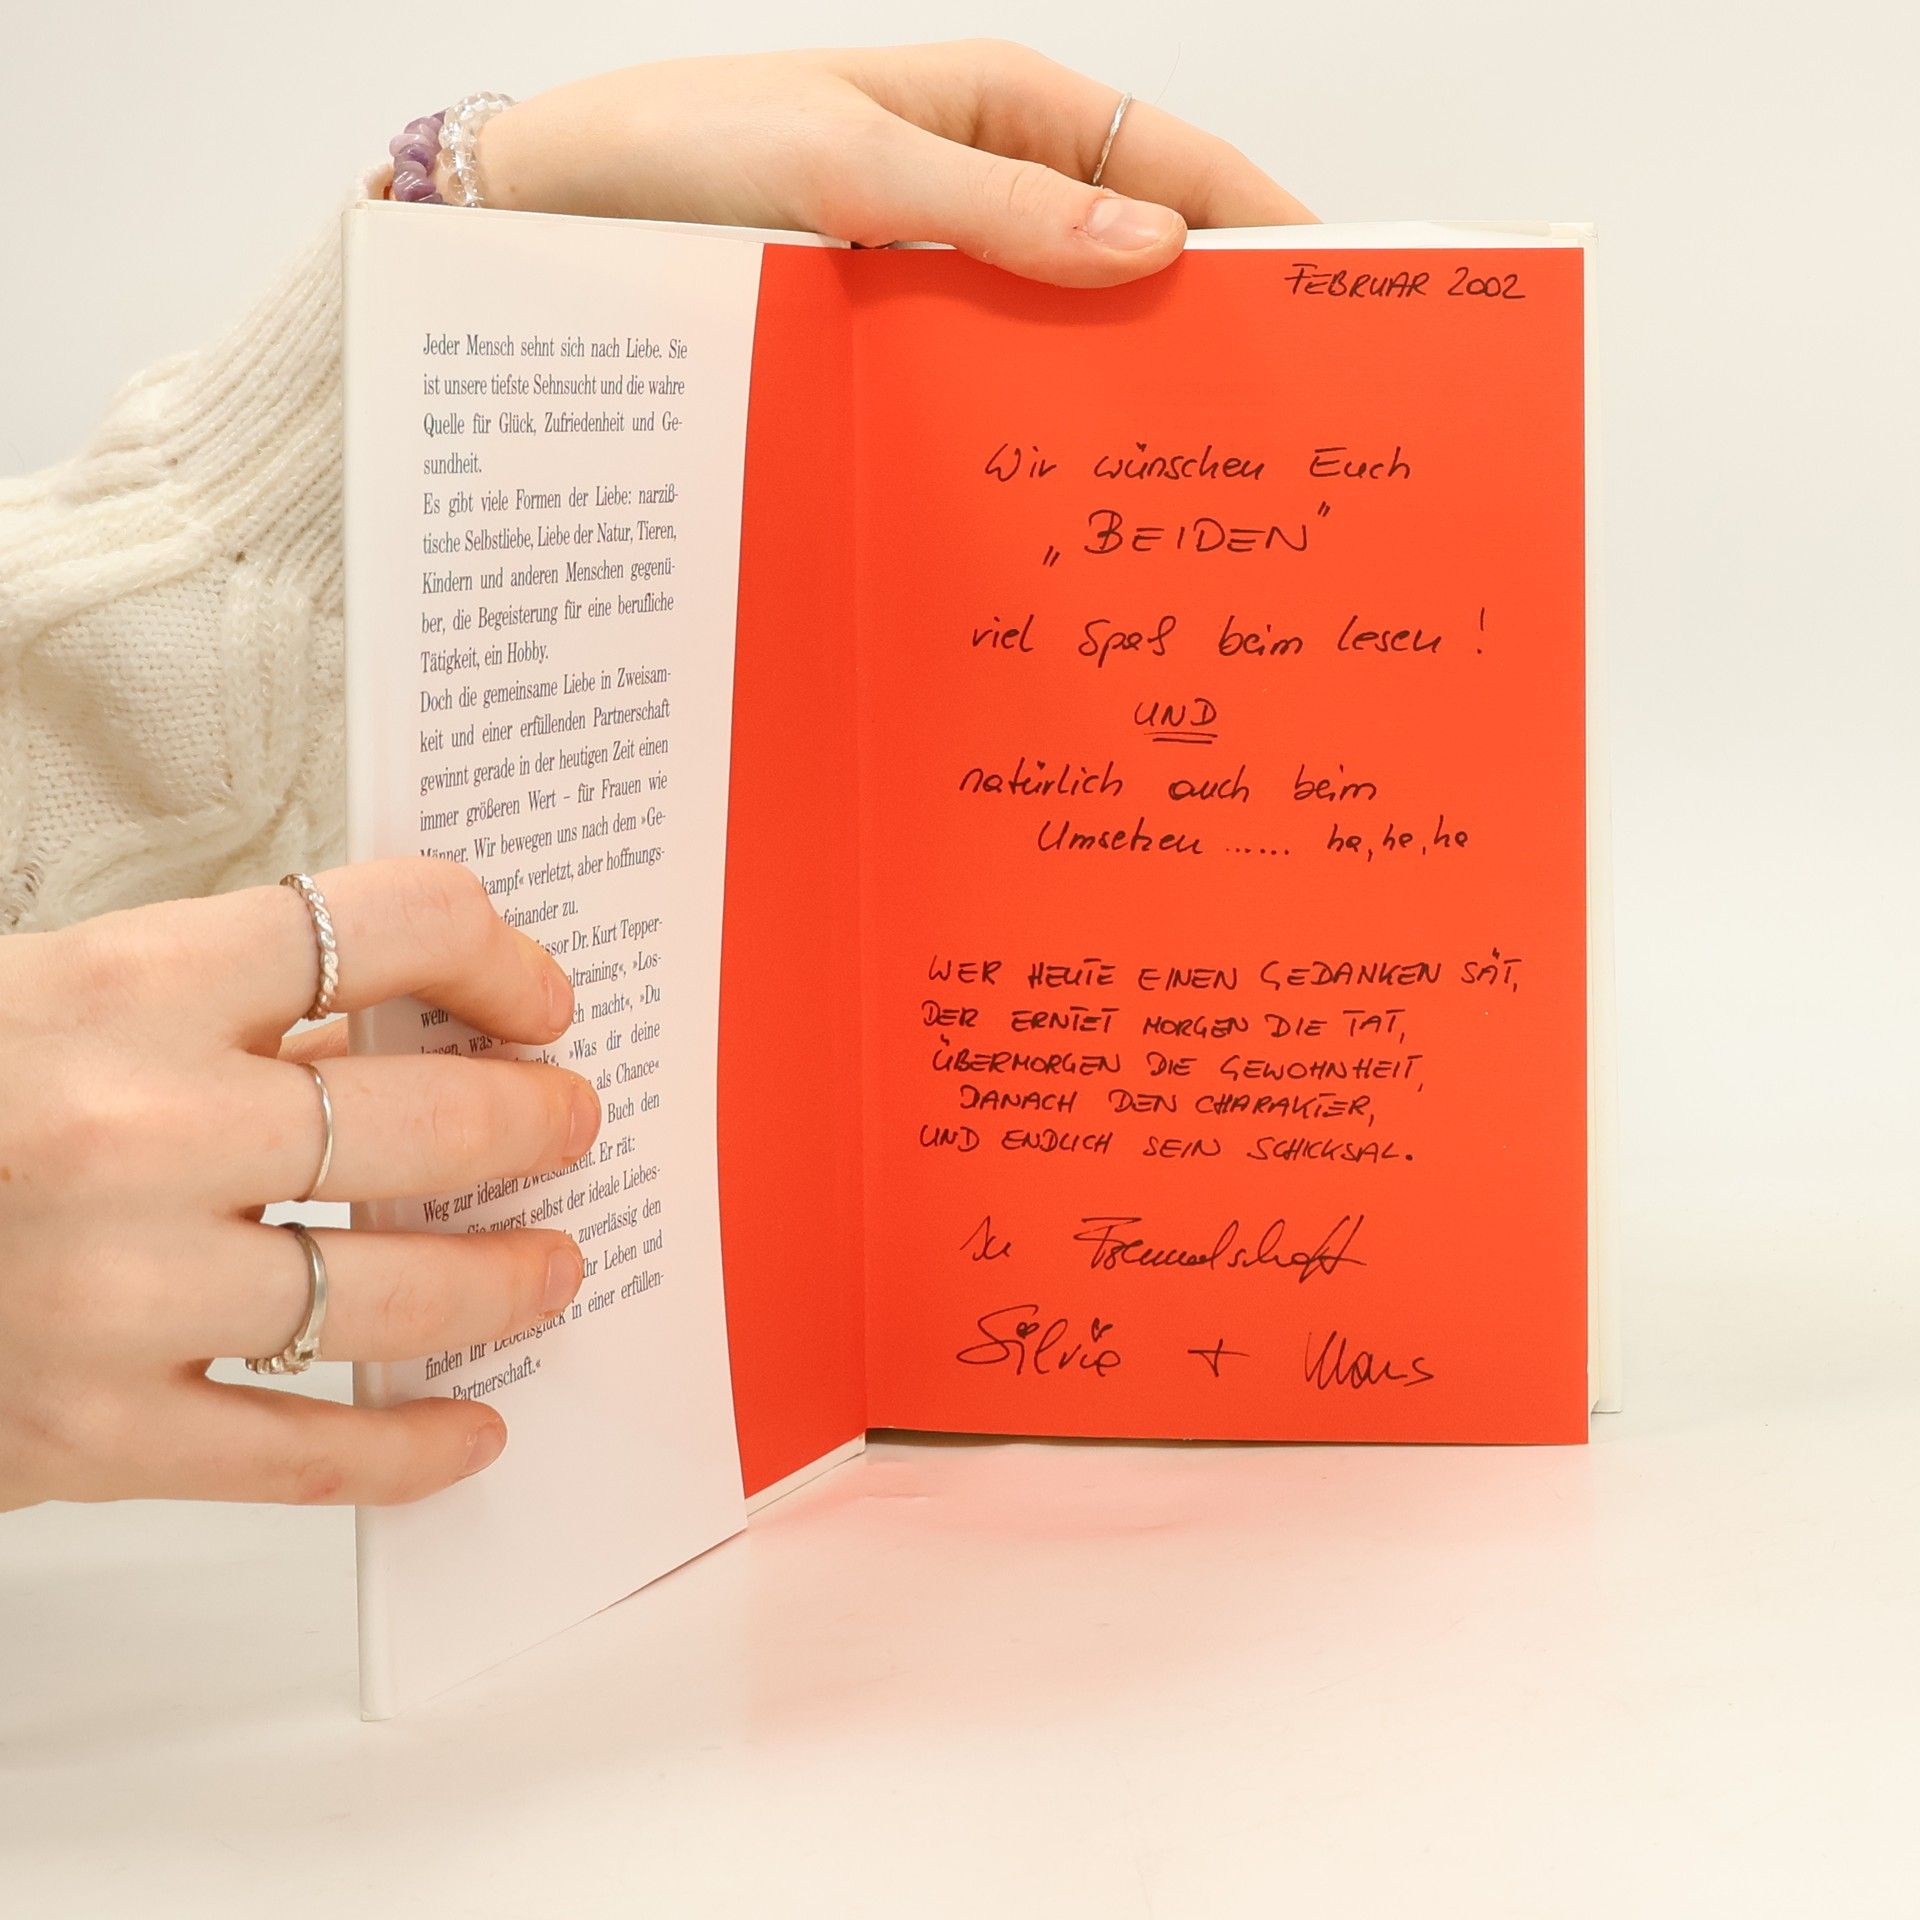 Jeder Mensch sehnt sich nach Liebe. Sie
ist unsere tiefste Sehnsucht und die wahre
Quelle für Glück, Zufriedenheit und Ge-
sundheit.
Es gibt viele Formen der Liebe: narziß-
tische Selbstliebe, Liebe der Natur, Tieren,
Kindern und anderen Menschen gegenü-
ber, die Begeisterung für eine berufliche
Tätigkeit, ein Hobby.
Doch die gemeinsame Liebe in Zweisam-
keit und einer erfüllenden Partnerschaft
gewinnt gerade in der heutigen Zeit einen
immer größeren Wert – für Frauen wie
Männer. Wir bewegen uns nach dem »Ge-
kampf« verletzt, aber hoffnungs-
feinander zu.
ssor Dr. Kurt Tepper-
ltraining«, »Los-
ch macht«, »Du
lassen, was
nk«, »Was dir deine
als Chance«
Buch den
Weg zur idealen Zweisamkeit. Er rät:
Sie zuerst selbst der ideale Liebes-
zuverlässig den
Ihr Leben und
finden Ihr Lebensglück in einer erfüllen-
Partnerschaft.«
FEBRUAR 2002
Wir wünschen Euch
„BEIDEN"
viel Spaß beim lesen!
UND
natürlich auch beim
Umsetzen ...... ha, ha, ha
WER HEUTE EINEN GEDANKEN SÄT,
DER ERNTET MORGEN DIE TAT,
ÜBERMORGEN DIE GEWOHNHEIT,
DANACH DEN CHARAKTER,
UND ENDLICH SEIN SCHICKSAL.
In Freundschaft
Silvia + Klaus